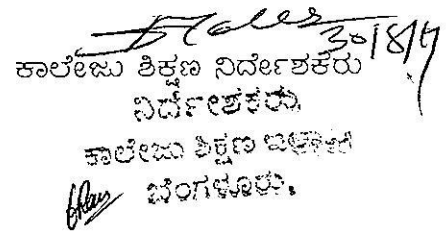 30/8/17
ಕಾಲೇಜು ಶಿಕ್ಷಣ ನಿರ್ದೇಶಕರು
ನಿರ್ದೇಶಕರು
ಕಾಲೇಜು ಶಿಕ್ಷಣ ಇಲಾಖೆ
ಬೆಂಗಳೂರು.